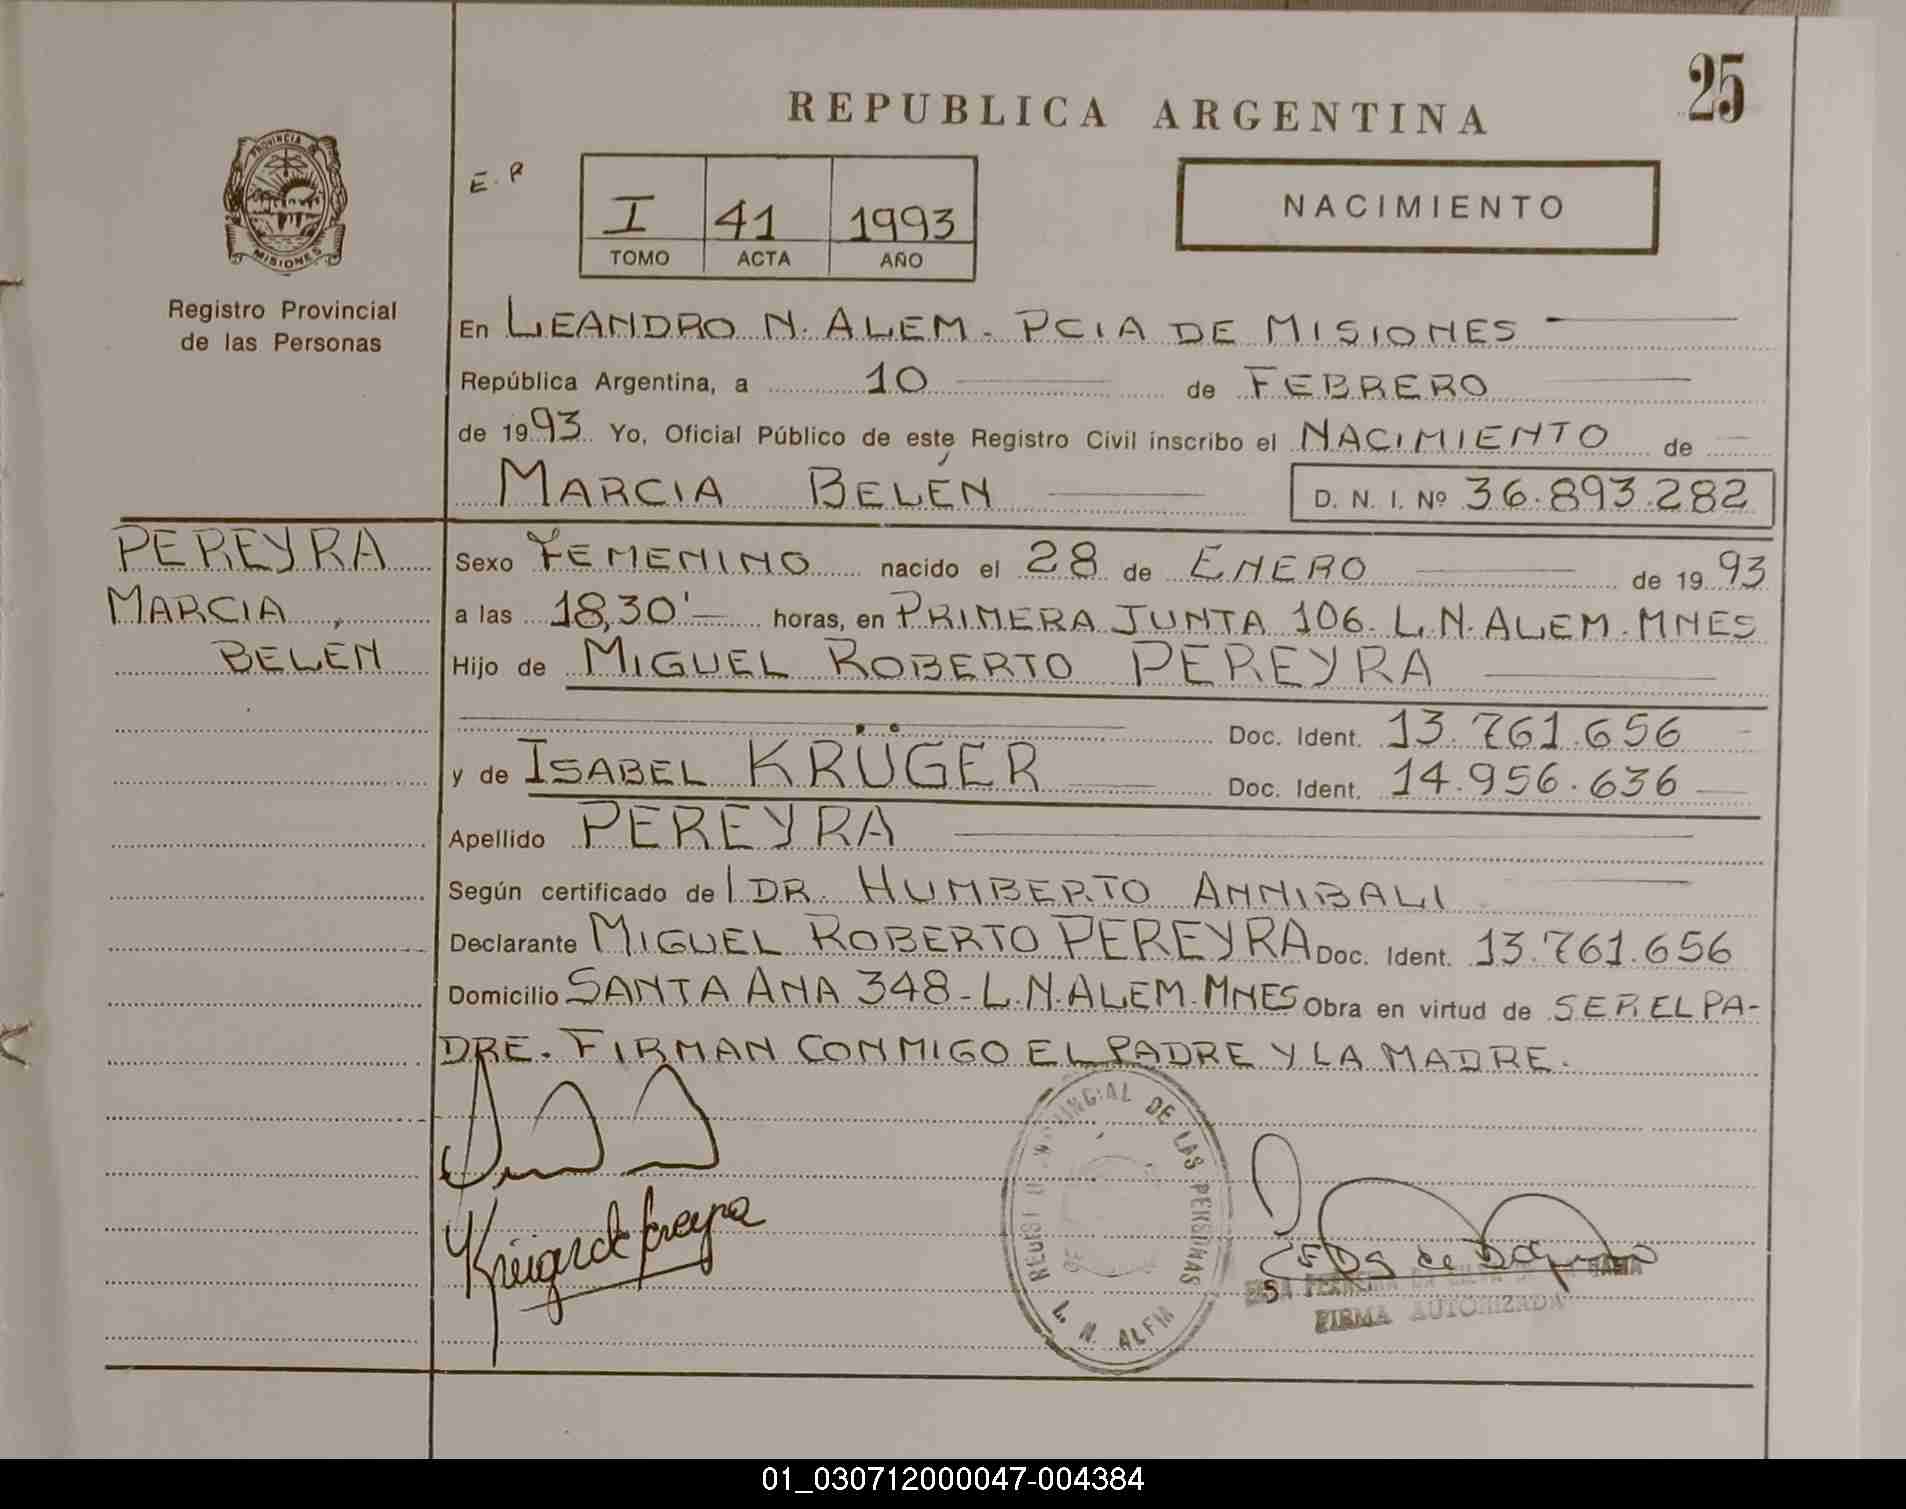 25
REPUBLICA ARGENTINA
PROVINCIA
MISIONES
Registro Provincial
de las Personas
E. R
I 41 1993
TOMO ACTA AÑO
NACIMIENTO
En LEANDRO N. ALEM. PCIA DE MISIONES
República Argentina, a 10 de FEBRERO
de 1993 Yo, Oficial Público de este Registro Civil inscribo el NACIMIENTO de
MARCIA BELÉN D. N. I. Nº 36.893.282
PEREYRA
MARCIA,
BELEN
Sexo FEMENINO nacido el 28 de ENERO de 1993
a las 18,30' horas, en PRIMERA JUNTA 106. L.N. ALEM. MNES
Hijo de MIGUEL ROBERTO PEREYRA
Doc. Ident. 13.761.656
y de ISABEL KRÜGER Doc. Ident. 14.956.636
Apellido PEREYRA
Según certificado de l DR. HUMBERTO ANNIBALI
Declarante MIGUEL ROBERTO PEREYRA Doc. Ident. 13.761.656
Domicilio SANTA ANA 348 - L.N. ALEM. MNES Obra en virtud de SER EL PA-
DRE. FIRMAN CONMIGO EL PADRE Y LA MADRE.
Krüger de Pereyra
DE LAS PERSONAS
L. N. ALEM
FIRMA AUTORIZADA
01_030712000047-004384